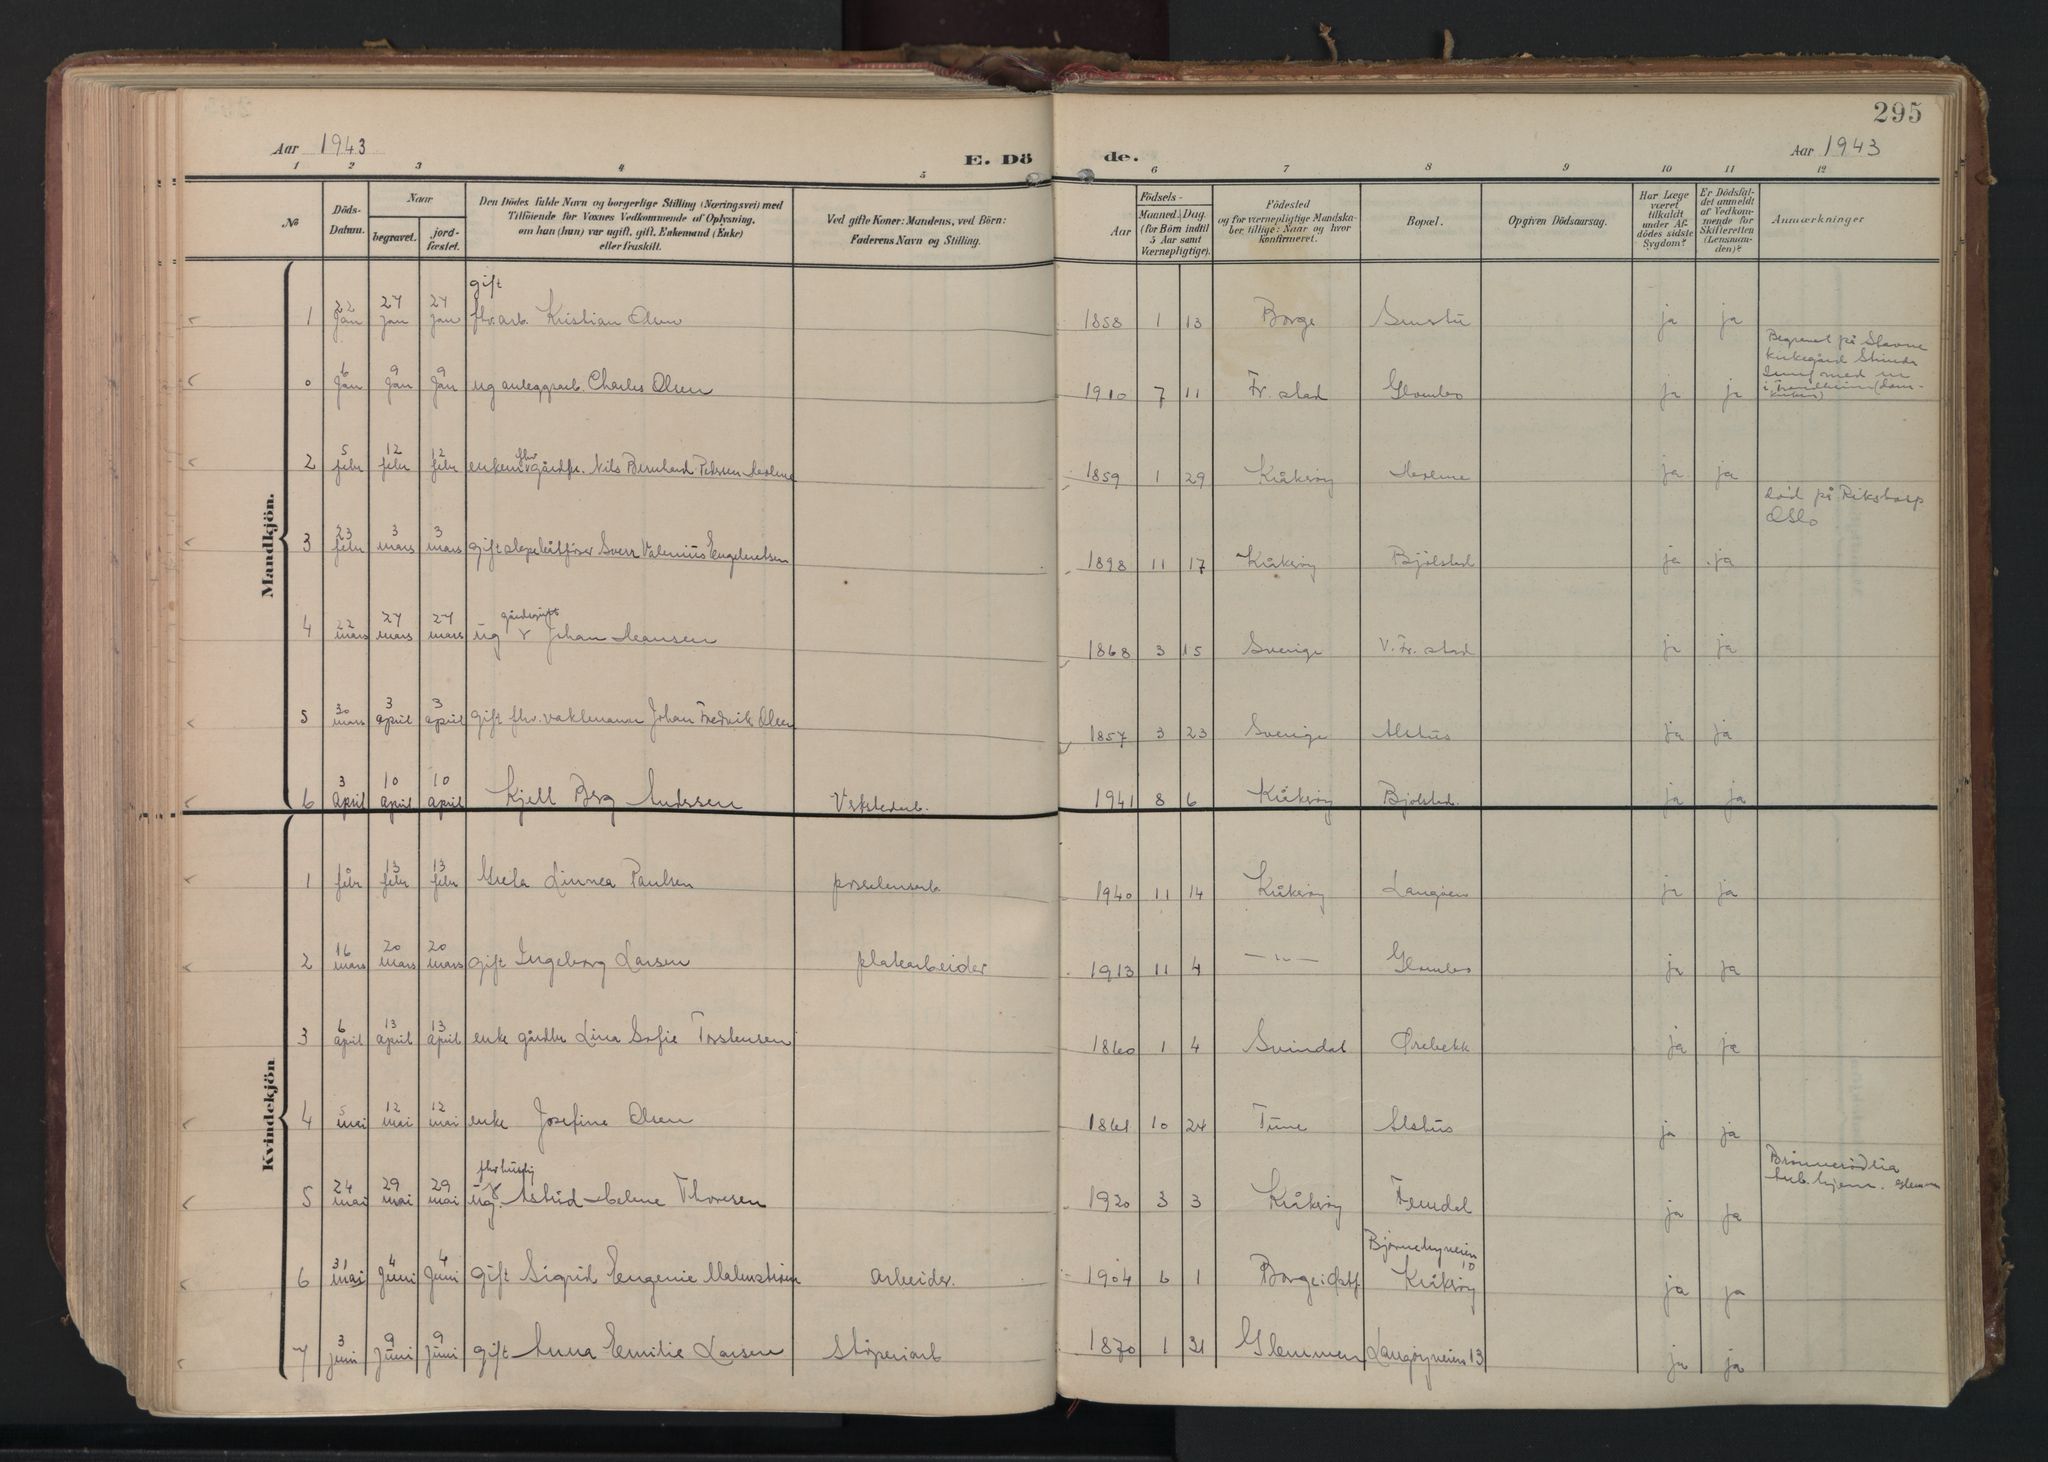 295
Aar 1943
E. Dö
de.
Aar 1943
1 2 3 4 5 6 7 8 9 10 11 12
№
Döds-
Datum.
Naar
begravet.
jord-
fæstet.
Den Dödes fulde Navn og borgerlige Stilling (Næringsvei) med
Tilföiende for Voxnes Vedkommende af Oplysning,
om han (hun) var ugift, gift, Enkemand (Enke)
eller fraskilt.
Ved gifte Koner: Mandens, ved Börn:
Faderens Navn og Stilling.
Födsels-
Aar
Maaned. Dag.
(for Börn indtil
5 Aar samt
Værnepligtige).
Födested
og for værnepligtige Mandska-
ber tillige: Naar og hvor
konfirmeret.
Bopæl.
Opgiven Dödsaarsag.
Har Læge
været
tilkaldt
under Af-
dödes sidste
Sygdom?
Er Dödsfal-
det anmeldt
af Vedkom-
mende for
Skifteretten
(Lensman-
den)?
Anmærkninger
Mandkjön.
gift
1 22 Jan 27 Jan 27 Jan fhv. arb. Kristian Olsen 1858 1 13 Borge ja ja
Begravet på Stavne
kirkegård
0 6 Jan 9 Jan 9 Jan ug anleggsarb. Charles Olsen 1910 7 11 Fr. stad Glombo ja ja
2 5 febr 12 febr 12 febr enkem fhv gårdbr. Nils Bernhard Petersen 1859 1 29 Kråkerøy ja ja
død på Rikshosp
Oslo
3 23 febr 3 mars 3 mars gift slepebåtfører Sverr Valenius Engebretsen 1898 11 17 Kråkerøy Bjølstad ja ja
4 22 mars 27 mars 27 mars ug Johan Hansen 1868 3 15 Sverige V. Fr. stad ja ja
5 30 mars 3 april 3 april gift fhv. vaktmann Johan Fredrik Olsen 1857 3 23 Sverige Alshus ja ja
6 3 april 10 april 10 april Kjell Berg Anderssen Verkstedarb. 1941 8 6 Kråkerøy Bjølstad. ja ja
Kvindekjön
1 febr 13 febr 13 febr Greta Linnea Paulsen porselensarb 1940 11 14 Kråkerøy Langøen ja ja
2 16 mars 20 mars 20 mars gift Ingeborg Larsen platearbeider 1913 11 4 — " — Glombo ja ja
3 6 april 13 april 13 april enke gårdbr Lina Sofie Torstensen 1860 1 4 Svindal Ørebekk ja ja
4 5 mai 12 mai 12 mai enke Josefine Olsen 1861 10 24 Tune Alshus ja ja
fhv hushj
Brønnerødlia
5 24 mai 29 mai 29 mai ug. Astrid Helene Thoresen 1920 3 3 Kråkerøy Femdal ja ja
tub. hjem. Glemmen
Bjørnehyveien
10
6 31 mai 4 Juni 4 Juni gift Sigrid Eugenie Malmstrøm arbeider. 1904 6 1 Borge i Østf. Kråkerøy ja ja
7 3 juni 9 Juni 9 Juni gift Anna Emilie Larsen støperiarb 1870 1 31 Glemmen Langøyveien 13 ja ja